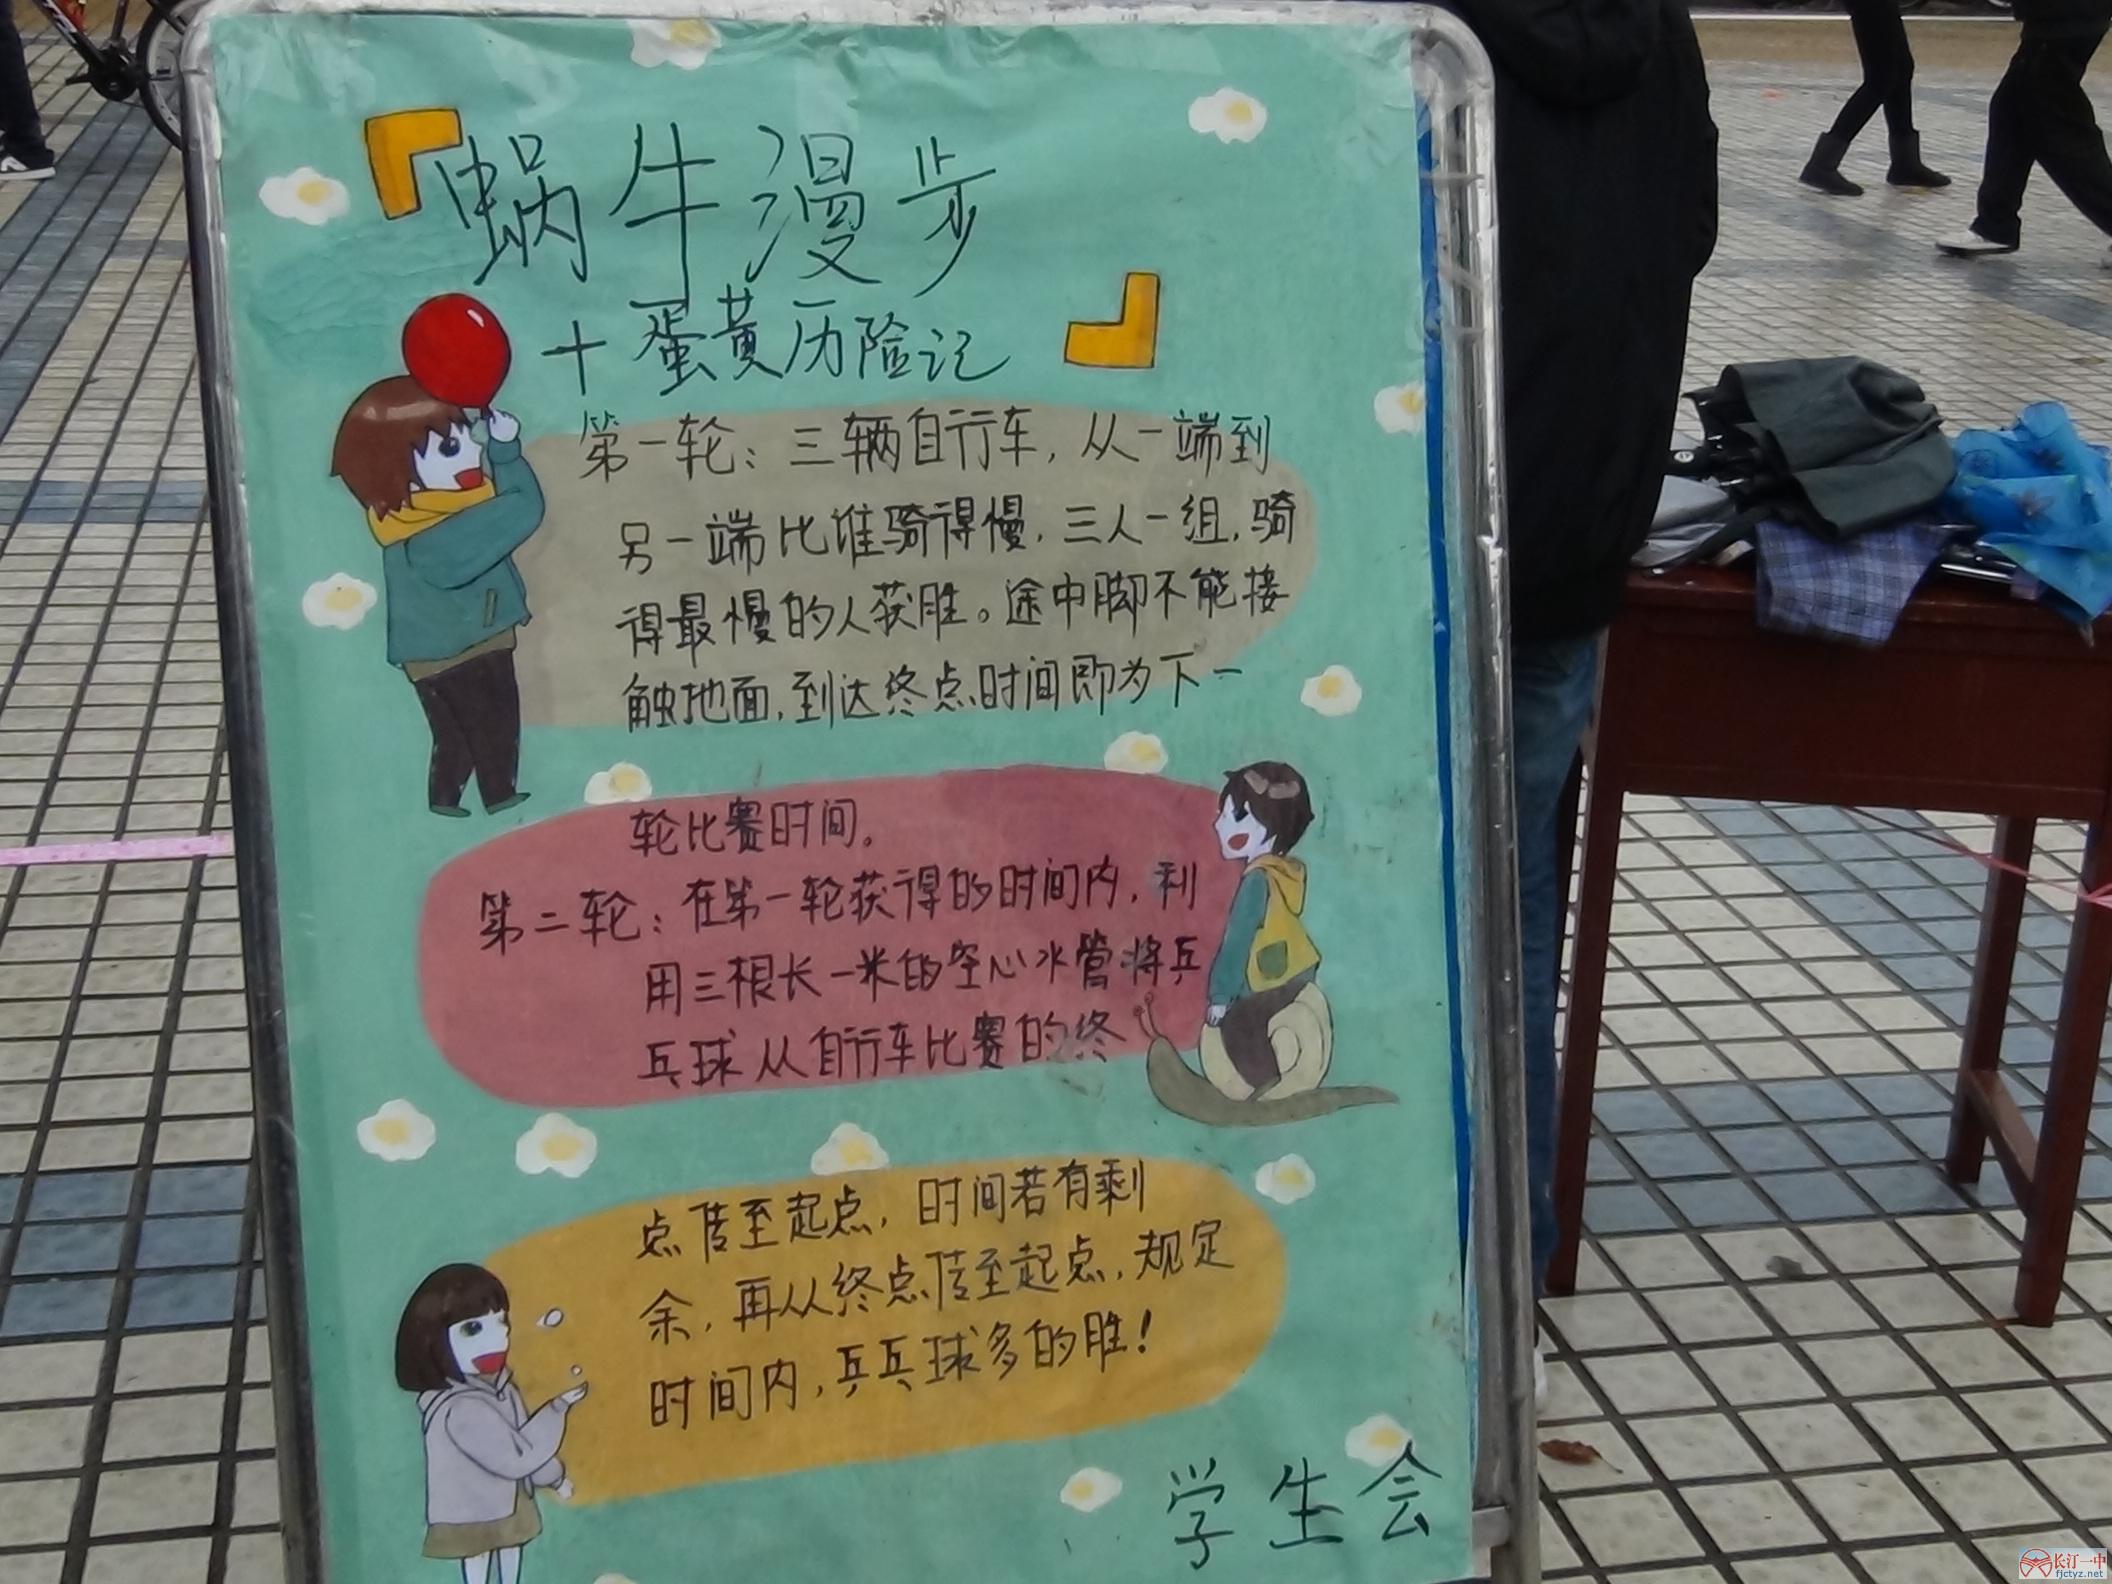 『蜗牛漫步
+蛋黄历险记』
第一轮：三辆自行车，从一端到
另一端比谁骑得慢，三人一组，骑
得最慢的人获胜。途中脚不能接
触地面，到达终点时间即为下一
轮比赛时间。
第二轮：在第一轮获得的时间内，利
用三根长一米的空心水管将乒
乓球从自行车比赛的终
点传至起点，时间若有剩
余，再从终点传至起点，规定
时间内，乒乓球多的胜！
学生会
长汀一中
fjctyz.net